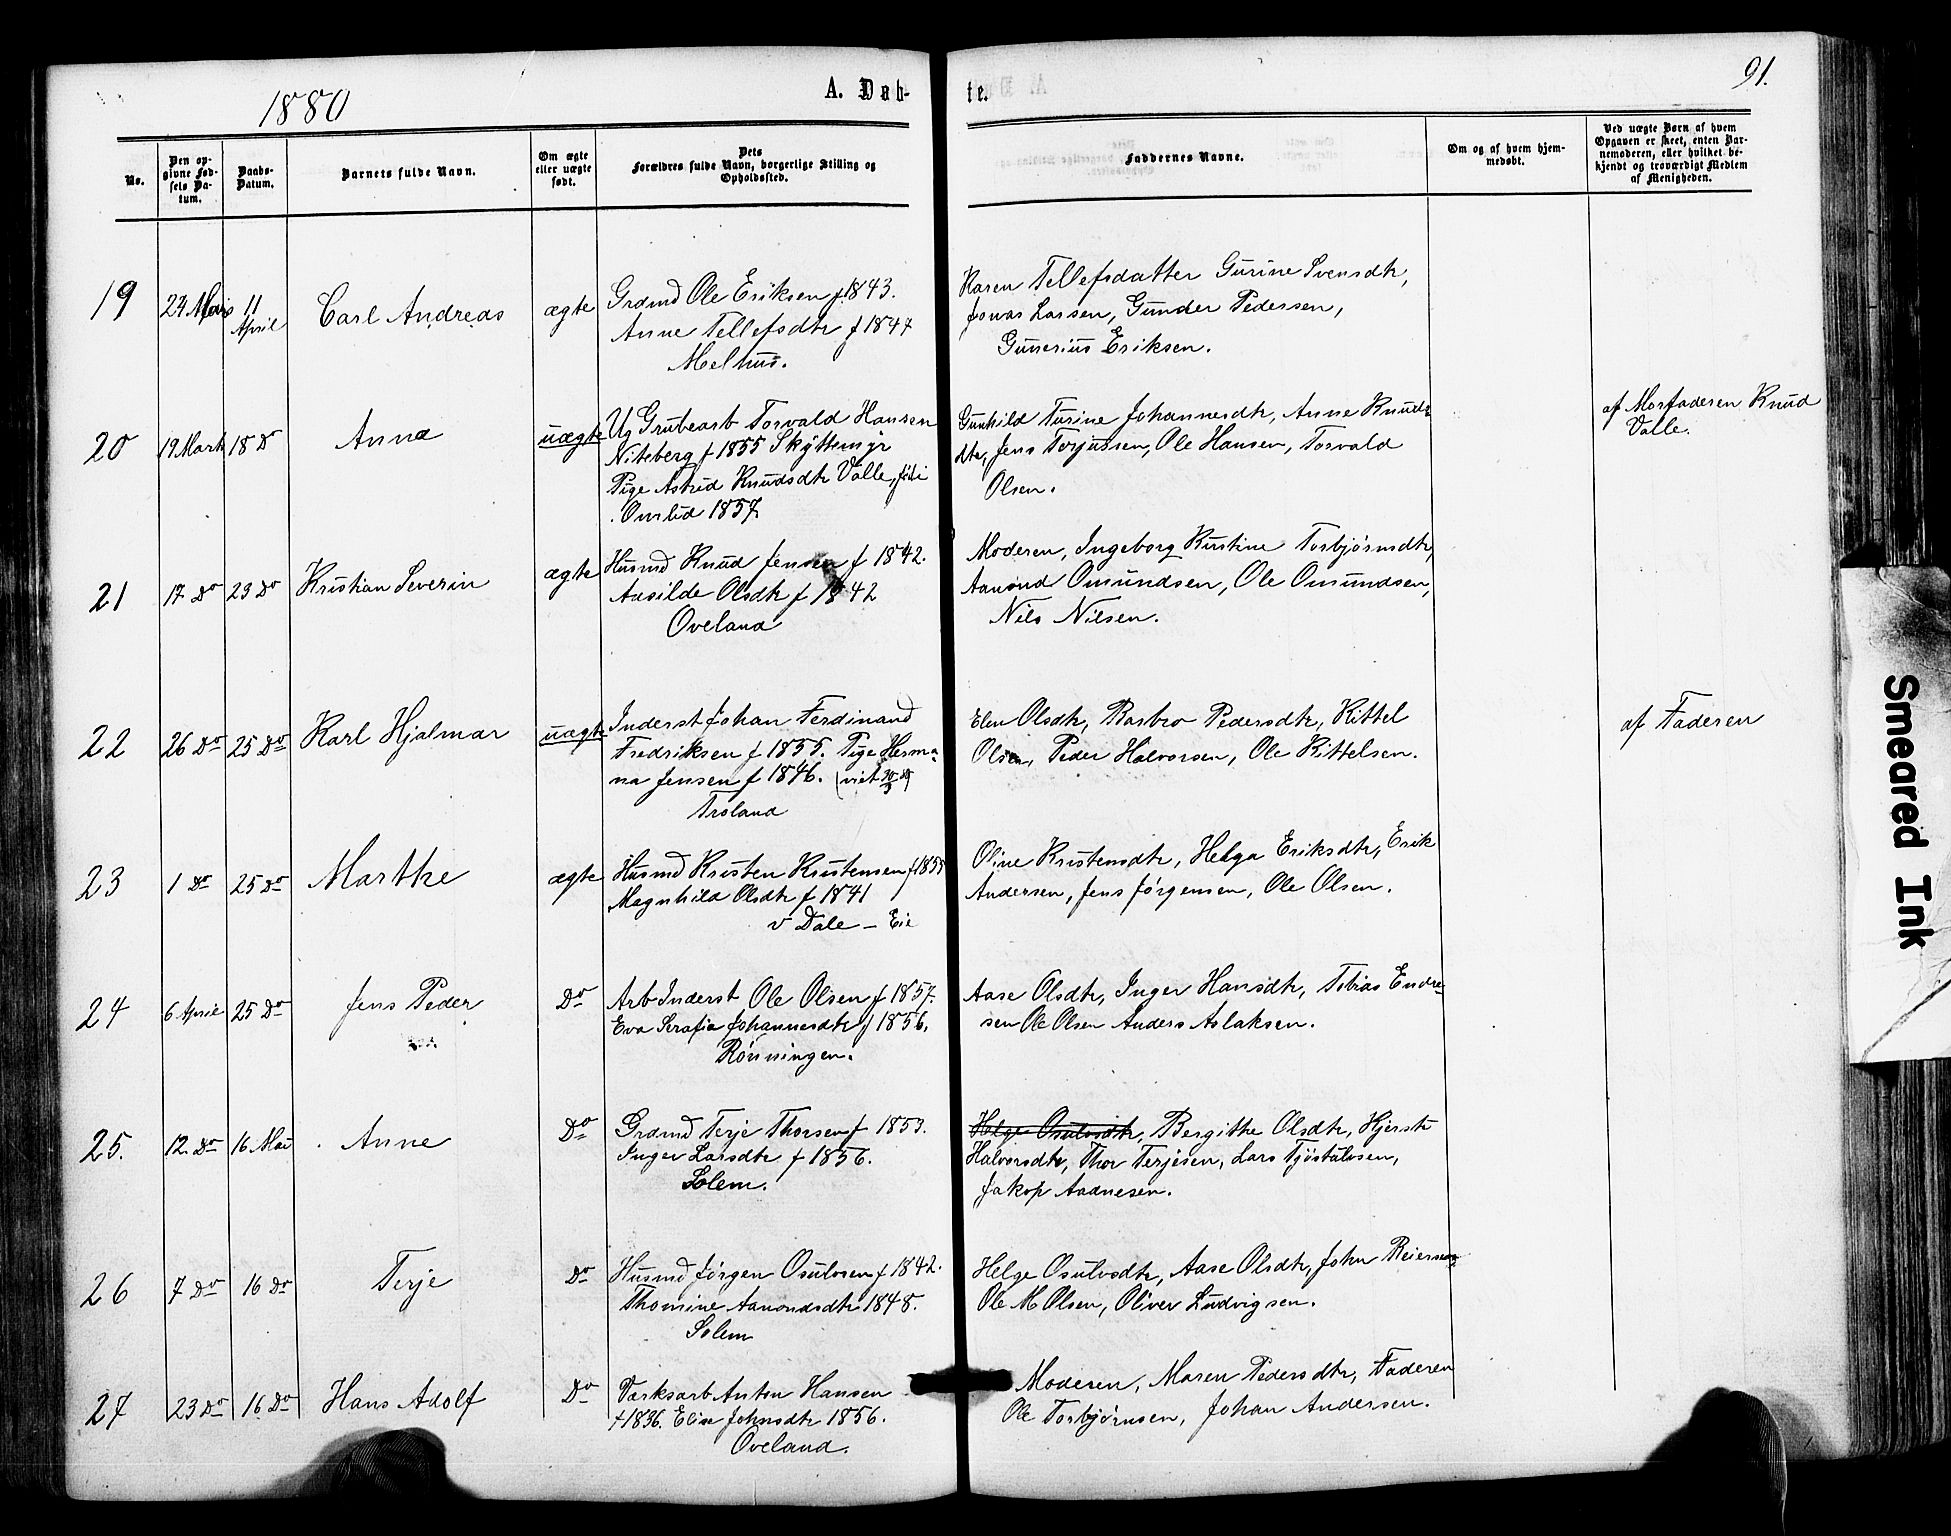 1880
A. Dab-
te.
91.
No.
Den op-
givne Fød-
sels Da-
tum.
Daabs-
Datum.
Barnets fulde Navn.
Om ægte
eller uægte
født.
Dets
Forældres fulde Navn, borgerlige Stilling og
Opholdssted.
Faddernes Navne.
Om og af hvem hjem-
medøbt.
Ved uægte Børn af hvem
Opgaven er skeet, enten Bar-
nemoderen, eller hvilket be-
kjendt og troværdigt Medlem
af Menigheden.
19
11
April
Carl Andreas
ægte
Grdmd Ole Eriksen f 1843.
Anne Tellefsdtr f 1844
Melhus.
Karen Tellefsdatter Gurine Svensdtr,
Jonas Larsen, Gunder Pedersen,
Gunerius Eriksen.
20
19 Marts
18 Do
Anna
uægte
Ug Grubearb Torvald Hansen
Niteberg f 1855 Skyttemyr
Pige Astrid Knudsdtr Valle, fød i
Omlid 1857
Gunhild Turine Johannesdtr, Anne Knuds-
dtr, Jens Torjussen, Ole Hansen, Torvald
Olsen.
af Morfaderen Knud
Valle.
21
17 Do
23 Do
Kristian Severin
ægte
Husmd Knud Jensen f 1842.
Aasilde Olsdtr f 1842
Oveland
Moderen, Ingeborg Kristine Torbjørnsdtr,
Aamund Omundsen, Ole Omundsen,
Nils Nilsen.
22
26 Do
25 Do
Karl Hjalmar
uægte
Inderst Johan Ferdinand
Fredriksen f 1855. Pige Herma-
na Jensen f 1846.
Troland
Elen Olsdtr, Barbro Pedersdtr, Kittel
Olsen, Peder Halvorsen, Ole Kittelsen.
af Faderen
23
1 Do
25 Do
Marthe
ægte
Husmd Kristen Kristensen f 1855
Magnhild Olsdtr f 1841
v Dale - Eie
Oline Kristensdtr, Helga Eriksdtr, Erik
Andersen, Jens Jørgensen, Ole Olsen.
24
6 April
25 Do
Jens Peder
Do
Arb Inderst Ole Olsen f 1857.
Eva Serafia Johannesdtr f 1856.
Rønningen.
Aase Olsdtr, Inger Hansdtr, Tobias Endre-
sen Ole Olsen Anders Aslaksen.
25.
12. Do
16 Mai
Anne
Do
Grdmd Terje Thorsen f 1853.
Inger Larsdtr f 1856.
Solem.
Helge Osulvsdtr, Bergithe Olsdtr, Kjersti
Halvorsdtr, Thor Terjesen, Lars Tjøstulvsen,
Jakop Aadnesen.
26
7 Do
16 Do
Terje
Do
Husmd Jørgen Osulvsen f 1842.
Thomine Aamondsdtr 1848.
Solem
Helge Osulvsdtr, Aase Olsdtr, John Reiersen,
Ole M Olsen, Oliver Ludvigsen.
27
23 Do
16 Do
Hans Adolf
Do
Værksarb Anton Hansen
f 1836. Elise Johnsdtr 1856.
Oveland.
Moderen, Maren Pedersdtr, Faderen
Ole Torbjørnsen, Johan Andersen.
Smeared Ink